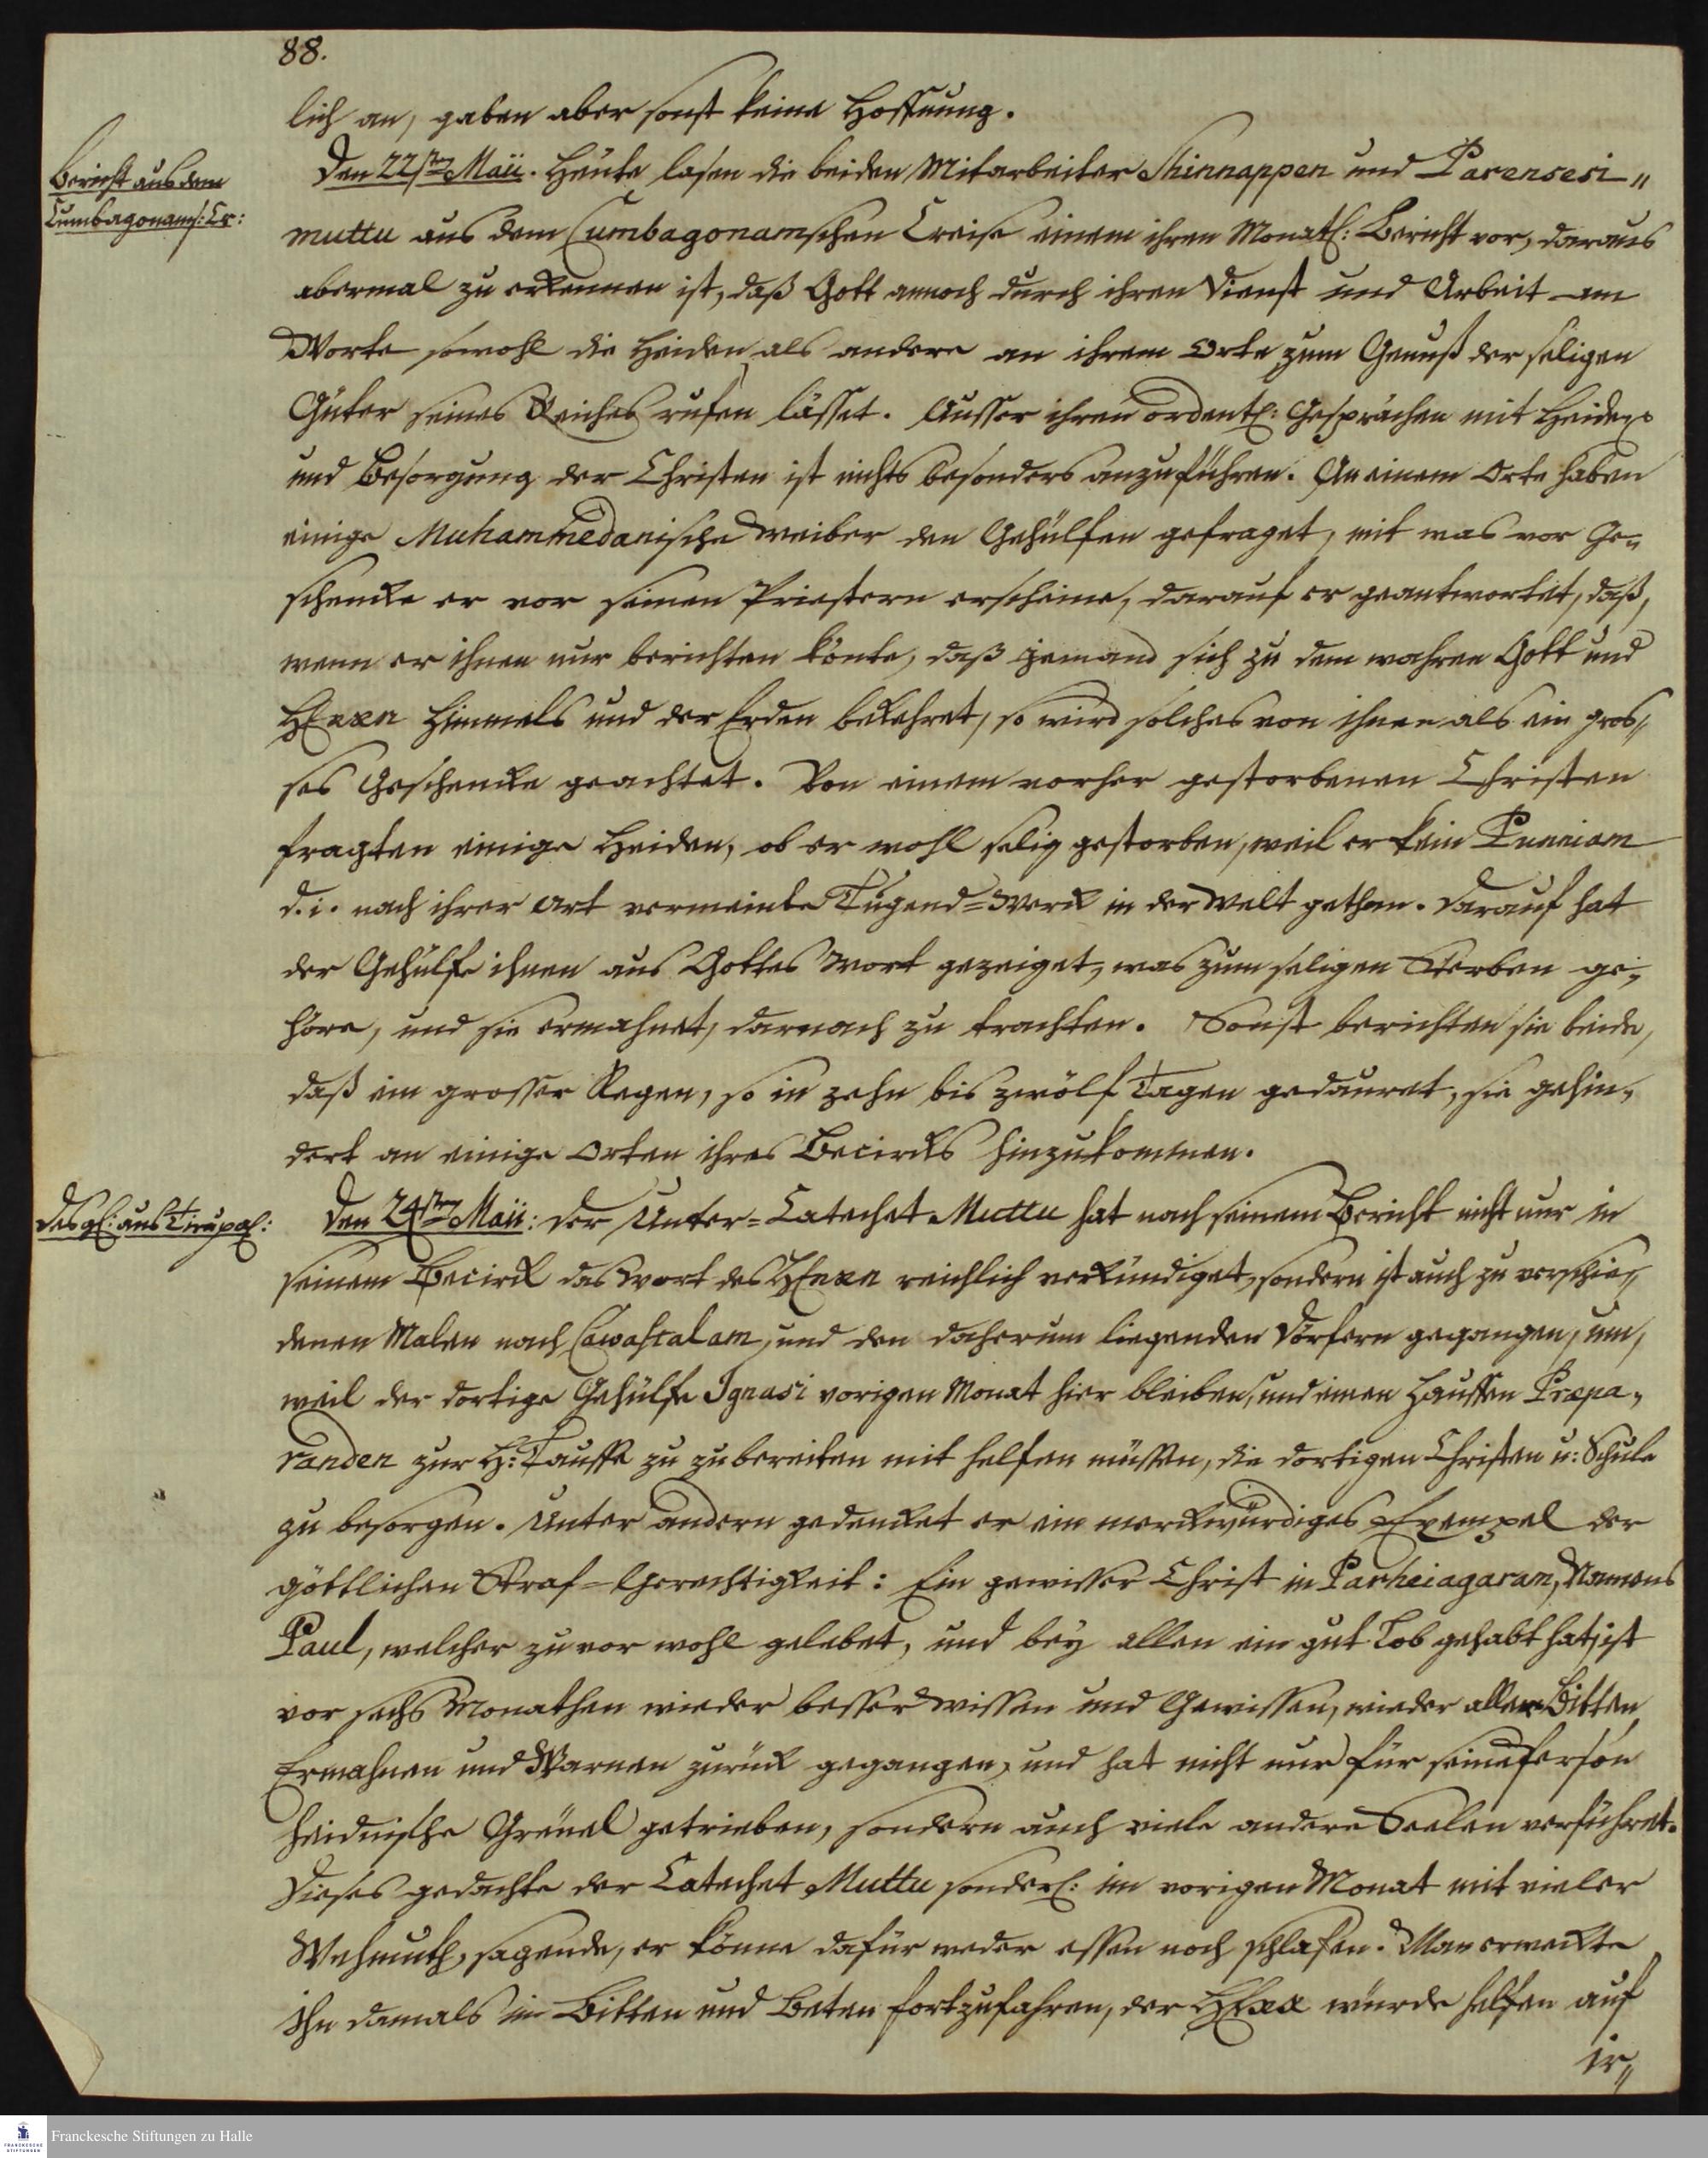 88.
lich an, gaben aber sonst keine Hoffnung.
Bericht aus dem
Cumbagonams: Cr:
Den 22sten Maii. Heute lasen die beiden Mitarbeiter Shinnappen und Parensesi„
muttu aus dem Cumbagonamschen Creise einem ihren Monatl: Bericht vor, daraus
abermal zu erkennen ist, daß Gott annoch durch ihren Dienst und Arbeit am
Worte sowohl die Heiden als andere an ihrem Orte zum Genuß der seligen
Güter seines Reiches rufen lässet. Ausser ihren ordentl: Gesprächen mit Heiden
und Besorgung der Christen ist nichts besonders anzuführen. An einem Orte haben
einige Muhammedanische Weiber den Gehülfen gefraget, mit was vor Ge„
schencke er vor seinen Priestern erscheine, darauf er geantwortet, daß,
wenn er ihnen nur berichten könte, daß jemand sich zu dem wahren Gott und
HErrn Himmels und der Erden bekehret, so wird solches von ihnen als ein gros„
ses Geschencke geachtet. Von einem vorher gestorbenen Christen
fragten einige Heiden, ob er wohl selig gestorben, weil er kein Punniam
d.i. nach ihrer Art vermeinte Tugend=Werck in der Welt gethan. Darauf hat
der Gehülfe ihnen aus Gottes Wort gezeiget, was zum seligen Sterben ge„
höre, und sie ermahnet, darnach zu trachten. Sonst berichten sie beide,
daß ein grosser Regen, so in zehn bis zwölf Tagen gedauret, sie gehin„
dert an einige Orten ihres Becircks hinzukommen.
Desgl: aus Tirupal:
Den 24sten Maii: Der Unter=Catechet Muttu hat nach seinem Bericht nicht nur in
seinem Becirck das Wort des HErrn reichlich verkündiget, sondern ist auch zu verschie„
denen Malen nach Cawastalam, und den daherum liegenden Dörfern gegangen, um,
weil der dortige Gehülfe Ignasi vorigen Monat hier bleiben, und einen Hauffen Præpa„
randen zur H: Tauffe zu zubereiten mit helfen müssen, die dortigen Christen u: Schule
zu besorgen. Unter andern gedencket er ein merckwürdiges Exempel der
göttlichen Straf=Gerechtigkeit: Ein gewisser Christ in Parheiagaram, Namens
Paul, welcher zuvor wohl gelebet, und bey allen ein gut Lob gehabt hat, ist
vor sechs Monathen wieder besser Wissen und Gewissen, wieder alles Bitten
Ermahnen und Warnen zurück gegangen, und hat nicht nur für seine Person
heidnische Greuel getrieben, sondern auch viele andere Seelen verführet.
Dieses gedachte der Catechet Muttu sonderl: im vorigen Monat mit vieler
Wehmuth, sagende, er könne dafür weder essen noch schlafen. Man erweckte
ihn damals im Bitten und Beten fortzufahren, der HErr würde helfen auf
ir„
FRANCKESCHE
STIFTUNGEN
Franckesche Stiftungen zu Halle